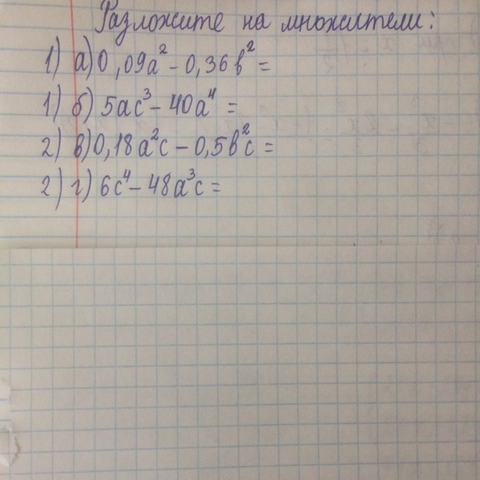 Разложите на множители:
1) а) 0,09a² - 0,36b² =
1) б) 5ac³ - 40a⁴ =
2) в) 0,18a²c - 0,5b²c =
2) г) 6c⁴ - 48a³c =